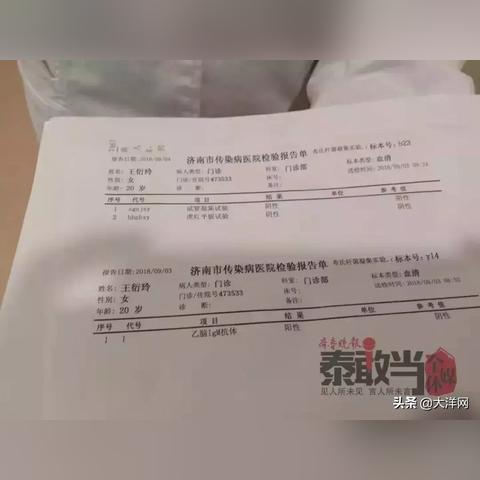 济南市传染病医院检验报告单 布氏杆菌凝集实验 标本号:b23
报告日期:2018/09/04 标本类型:血清
姓名: 王衍玲 病人类型:门诊 科室: 门诊部
性别: 女 门诊/住院号473533 床号:
年龄: 20 岁 诊 断: 备注:
序号 代号 项 目 结 果 单位 参 考 值
1 试管凝集试验 阴性 阴性
2 虎红平板试验 阴性 阴性
济南市传染病医院检验报告单 布氏杆菌凝集实验 标本号:r14
报告日期:2018/09/03 标本类型:血清
姓名: 王衍玲 病人类型:门诊 科室: 门诊部
性别: 女 门诊/住院号473533 床号:
年龄: 20 岁 诊 断: 备注:
序号 代号 项 目 结 果 单位 参 考 值
1 1 乙脑IgM抗体 阳性 阴性
齐鲁晚报
泰敢当 个体媒
见人所未见 言人所未言
头条 @大洋网